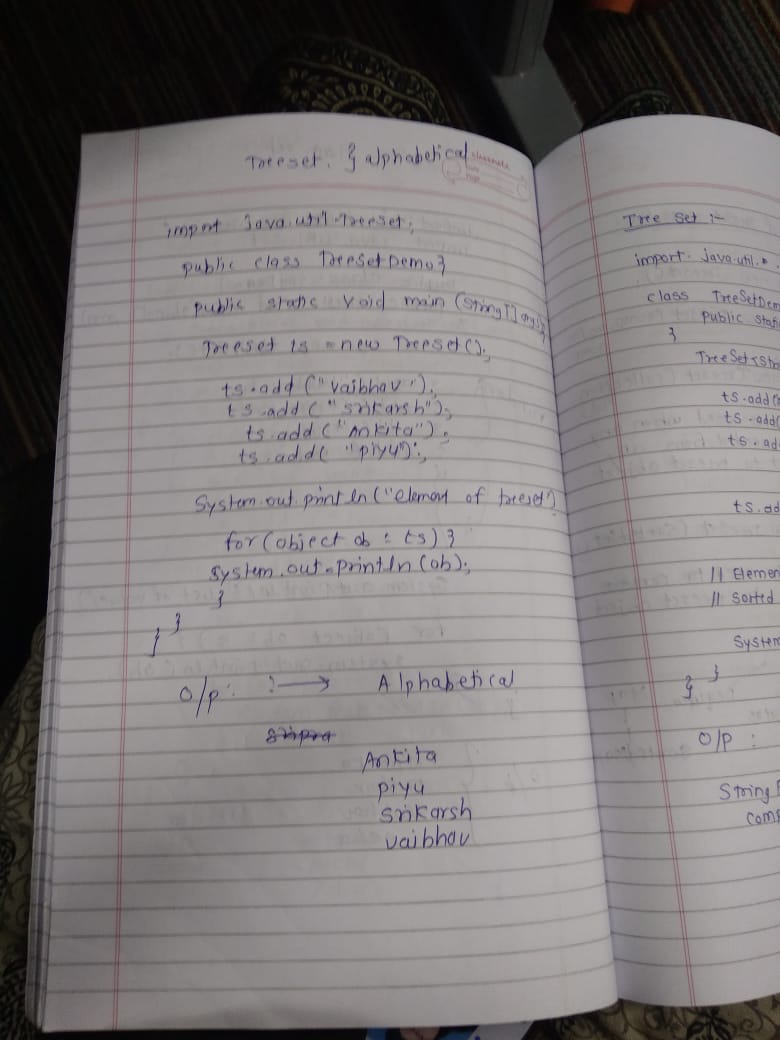 Treeset. } alphabetical
classmate
import java.util.Treeset;
public class TreeSetDemo }
public static void main (String [] args) {
Treeset ts = new TreeSet();
ts.add ("vaibhav");
ts.add ("srikarsh");
ts.add ("Ankita");
ts.add( "piyu");
System.out.println ("element of treeset")
for (object ob : ts) }
system.out.println (ob);
}
}
}
O/p: :→ Alphabetical
Ankita
piyu
srikarsh
vaibhav
Tree Set :-
import java.util.*
class TreeSetDem
public stati
}
TreeSet<Stri
ts.add(
ts.add(
ts.ad
ts.ad
// Elemen
// Sorted
System
}
}
O/P :
String
Comp